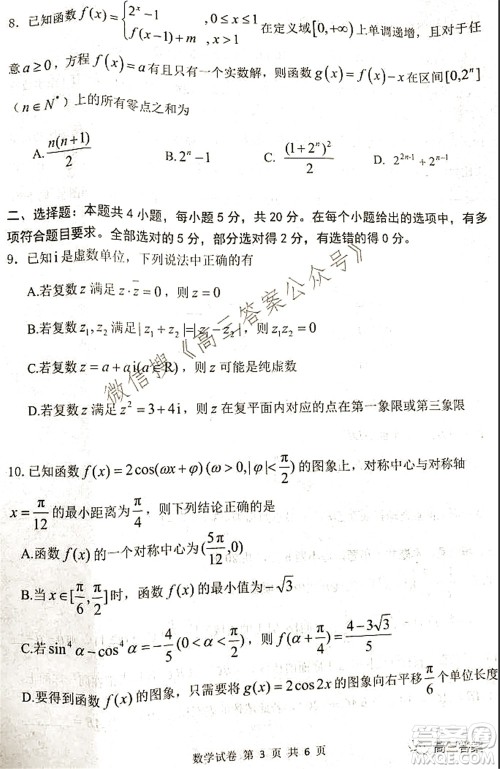 8. 已知函数 f(x)={2ˣ-1 ,0≤x≤1
f(x-1)+m ,x>1 在定义域[0,+∞)上单调递增，且对于任
意 a≥0，方程 f(x)=a 有且只有一个实数解，则函数 g(x)=f(x)-x 在区间[0,2ⁿ]
（n∈N*）上的所有零点之和为
A. n(n+1)/2 B. 2ⁿ-1 C. (1+2ⁿ)²/2 D. 2²ⁿ⁻¹+2ⁿ⁻¹
二、选择题：本题共 4 小题，每小题 5 分，共 20 分。在每个小题给出的选项中，有多
项符合题目要求。全部选对的 5 分，部分选对得 2 分，有选错的得 0 分。
9. 已知 i 是虚数单位，下列说法中正确的有
A.若复数 z 满足 z·z̄=0，则 z=0
B.若复数 z₁,z₂ 满足|z₁+z₂|=|z₁-z₂|，则 z₁z₂=0
C.若复数 z=a+ai(a∈R)，则 z 可能是纯虚数
D.若复数 z 满足 z²=3+4i，则 z 在复平面内对应的点在第一象限或第三象限
10. 已知函数 f(x)=2cos(ωx+φ)(ω>0,|φ|<π/2) 的图象上，对称中心与对称轴
x=π/12 的最小距离为 π/4，则下列结论正确的是
A.函数 f(x) 的一个对称中心为(5π/12,0)
B.当 x∈[π/6,π/2]时，函数 f(x) 的最小值为 -√3
C.若 sin⁴α-cos⁴α=-4/5(0<α<π/2)，则 f(α+π/4)=(4-3√3)/5
D.要得到函数 f(x) 的图象，只需要将 g(x)=2cos2x 的图象向右平移 π/6 个单位长度
数学试卷 第 3 页 共 6 页
微信搜《高三答案公众号》
高三答案